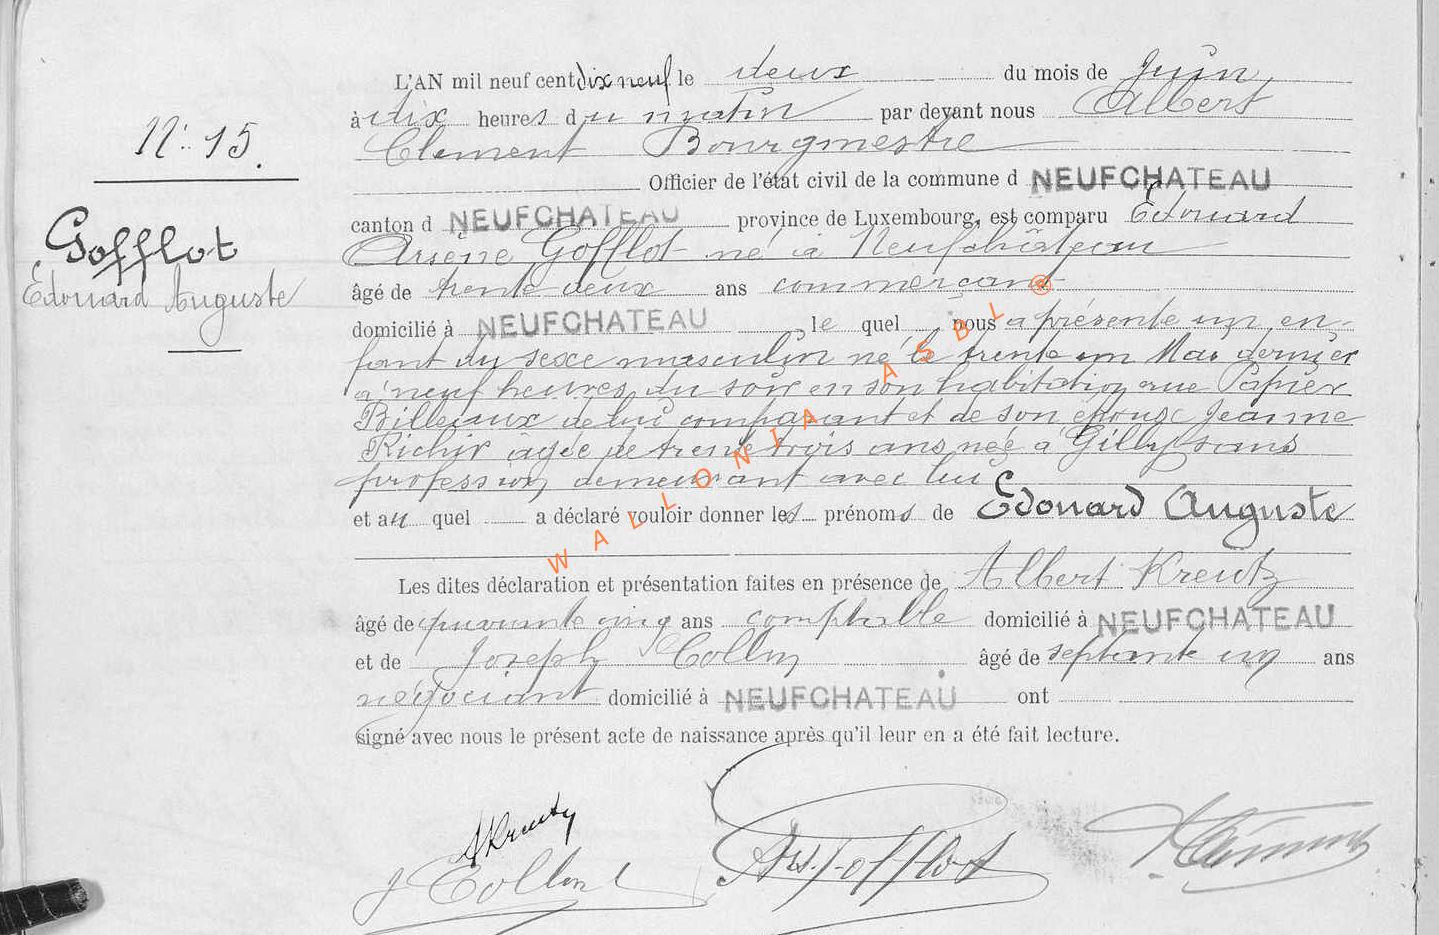 N: 15.
Gofflot
Edouard Auguste
L'AN mil neuf cent dix neuf le deux du mois de Juin,
à dix heures du matin par devant nous Albert
Clement Bourgmestre
Officier de l'état civil de la commune d NEUFCHATEAU
canton d NEUFCHATEAU province de Luxembourg, est comparu Edouard
Arsène Gofflot né à Neufchâteau
âgé de trente deux ans commerçant
domicilié à NEUFCHATEAU, le quel nous a présenté un en-
fant du sexe masculin né le trente un Mai dernier
à neuf heures du soir en son habitation rue Papier
Billeaux de lui comparant et de son épouse Jeanne
Richir âgée de trente trois ans née à Gilly sans
profession, demeurant avec lui
et au quel a déclaré vouloir donner les prénoms de Edouard Auguste
Les dites déclaration et présentation faites en présence de Albert Kreutz
âgé de quarante cinq ans comptable domicilié à NEUFCHATEAU
et de Joseph Collin âgé de septante un ans
négociant domicilié à NEUFCHATEAU ont
signé avec nous le présent acte de naissance après qu'il leur en a été fait lecture.
AKreutz
J Collin
Ars. Gofflot
WALLONIA ASBL ®